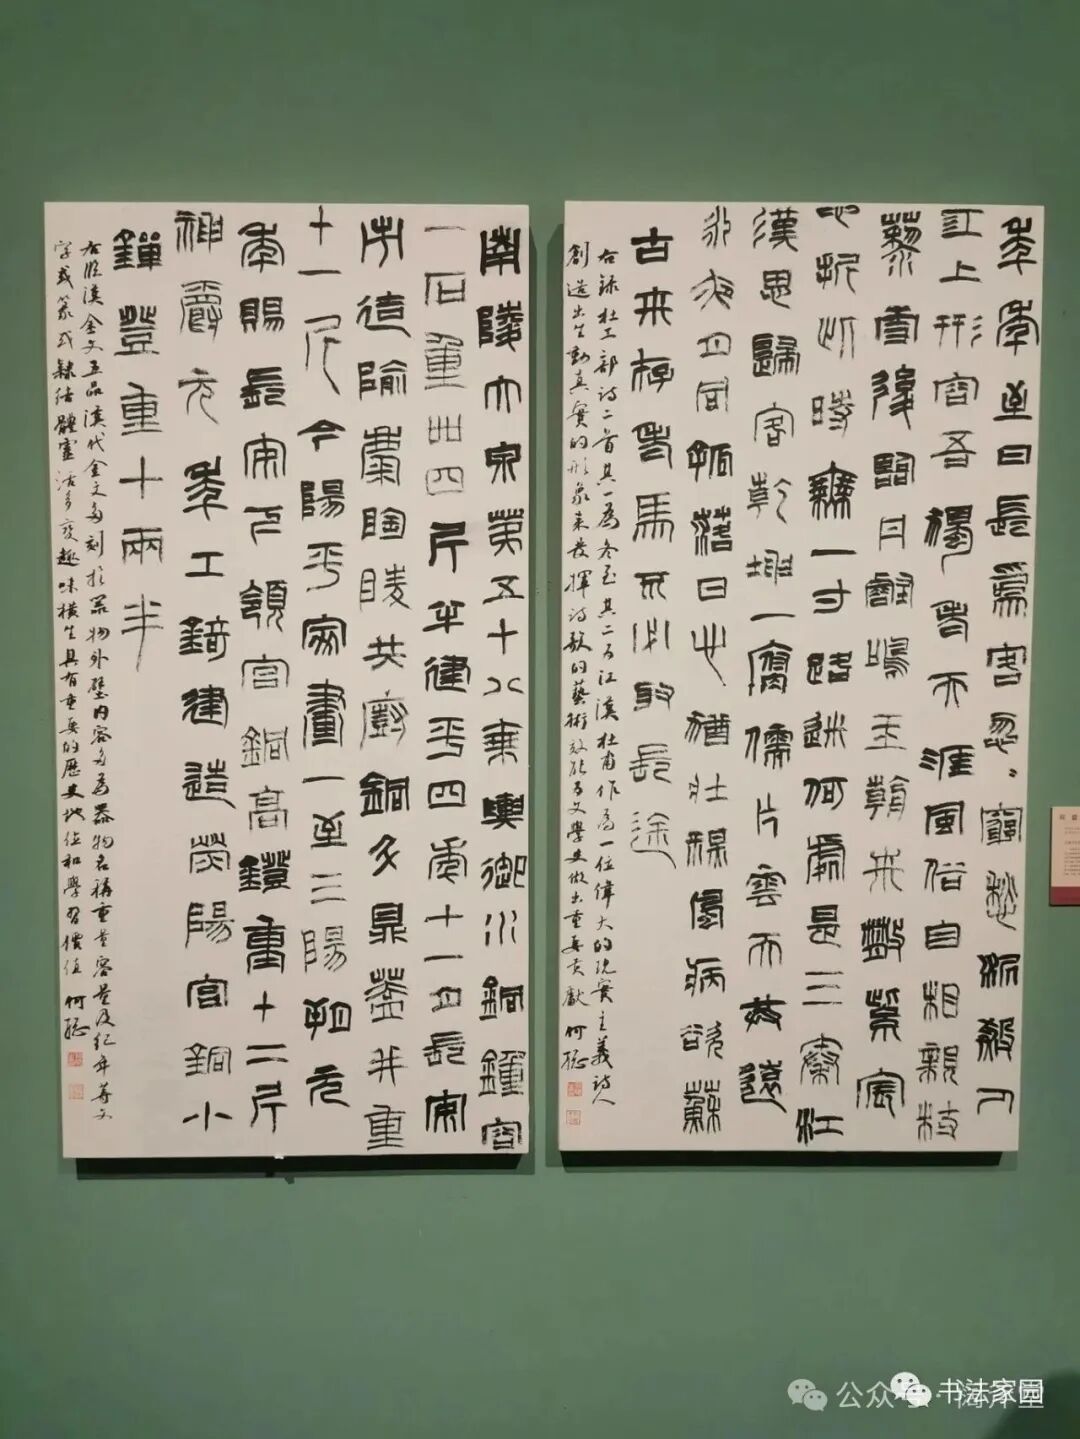 年年至日長爲客忽〻窮愁泥殺人
江上形容吾獨老天涯風俗自相親杖
藜雪後臨丹壑鳴玉朝來散紫宸
心折此時無一寸路迷何處是三秦江
漢思歸客乾坤一腐儒片雲天共遠
永夜月同孤落日心猶壯穐風病欲蘇
古來存老馬不必取長途
右録杜工部詩二首其一為冬至其二为江漢杜甫作為一位偉大的現實主義詩人
創造出生動真實的形象來發揮詩歌的藝術效能为文學史做出重要貢獻 何聰
南陵大泉第五十八乘輿御水銅鍾容
一石重卌四斤半建平四年十一月長安
市造隃麋陶陵共廚銅斗鼎蓋并重
十一斤今陽平家畫一至三陽朔元
年賜長安下領宮銅高鐙重十二斤
神爵元年工錡建造滎陽宮銅小
鐎登重十兩半
右臨漢金文五品漢代金文多刻於器物外壁内容多為器物名稱重量容量及紀年等文
字或篆或隸結體靈活多變趣味橫生具有重要的歷史地位和學習價值 何聰
公众号
书法家园